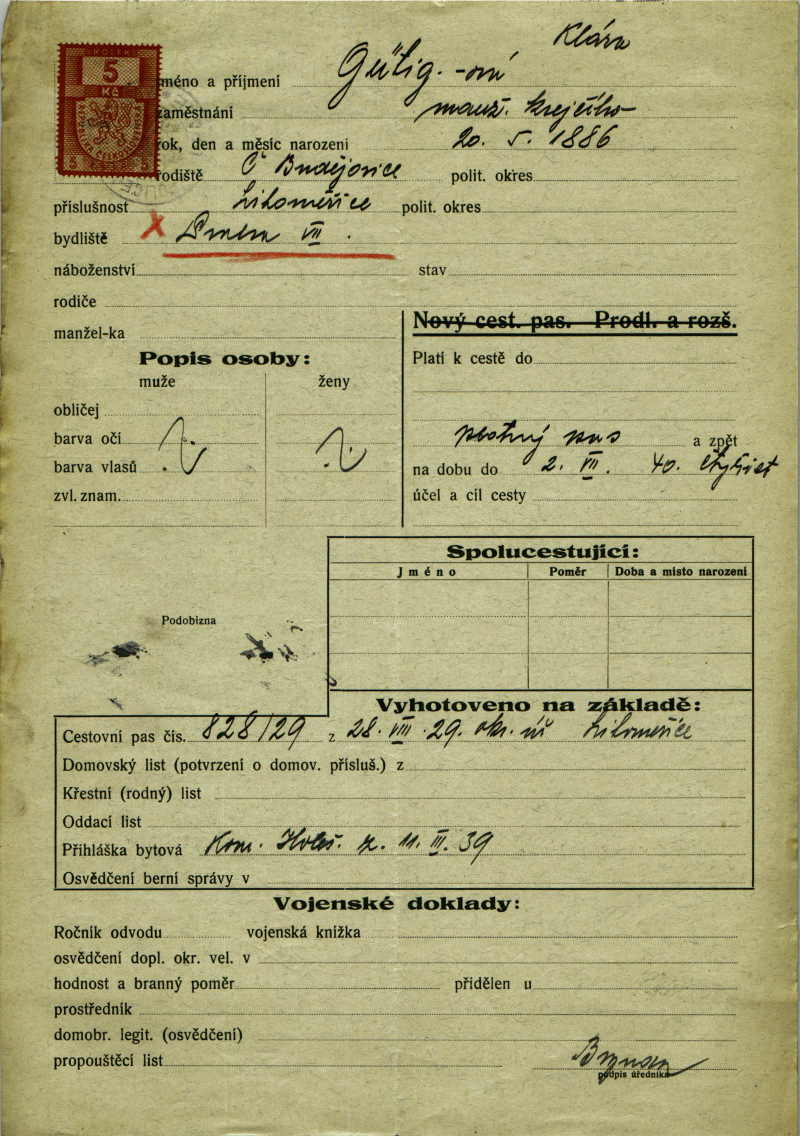 Klára
jméno a příjmení Gütig.-ová
zaměstnání manž. krejčího
rok, den a měsíc narození 20. 5. 1886
rodiště Č Budějovice polit. okres
příslušnost Litoměřice polit. okres
bydliště X Praha VII.
náboženství stav
rodiče
manžel-ka
Nový cest. pas. Prodl. a rozš.
Popis osoby:
Platí k cestě do
muže ženy
obličej
barva očí
pas a zpět
barva vlasů
na dobu do 2. VII. 40.
zvl. znam.
účel a cíl cesty
5
Kč
5 5
Spolucestující:
Jméno Poměr Doba a místo narození
Podobizna
Vyhotoveno na základě:
Cestovní pas čís. 828/29 z 28. VIII. 29. okr. úř Litoměřice
Domovský list (potvrzení o domov. přísluš.) z
Křestní (rodný) list
Oddací list
Přihláška bytová Kom. Holeš. z. 11. III. 39
Osvědčení berní správy v
Vojenské doklady:
Ročník odvodu vojenská knížka
osvědčení dopl. okr. vel. v
hodnost a branný poměr přidělen u
prostředník
domobr. legit. (osvědčení)
propouštěcí list
podpis úředníka